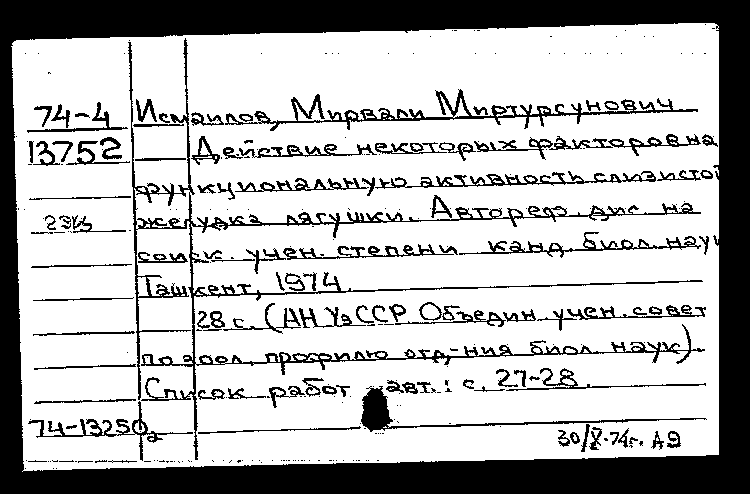 74-4 Исмаилов, Мирвали Миртурсунович
13752 Действие некоторых факторов на
функциональную активность слизистой
желудка лягушки. Автореф. дис. на
соиск. учен. степени канд. биол. наук
Ташкент, 1974.
28 с. (АН УзССР. Объедин. учен. совет
по зоол. профилю отд-ния биол. наук).
Список работ авт.: с. 27-28.
74-13250
30/X-74г. А9